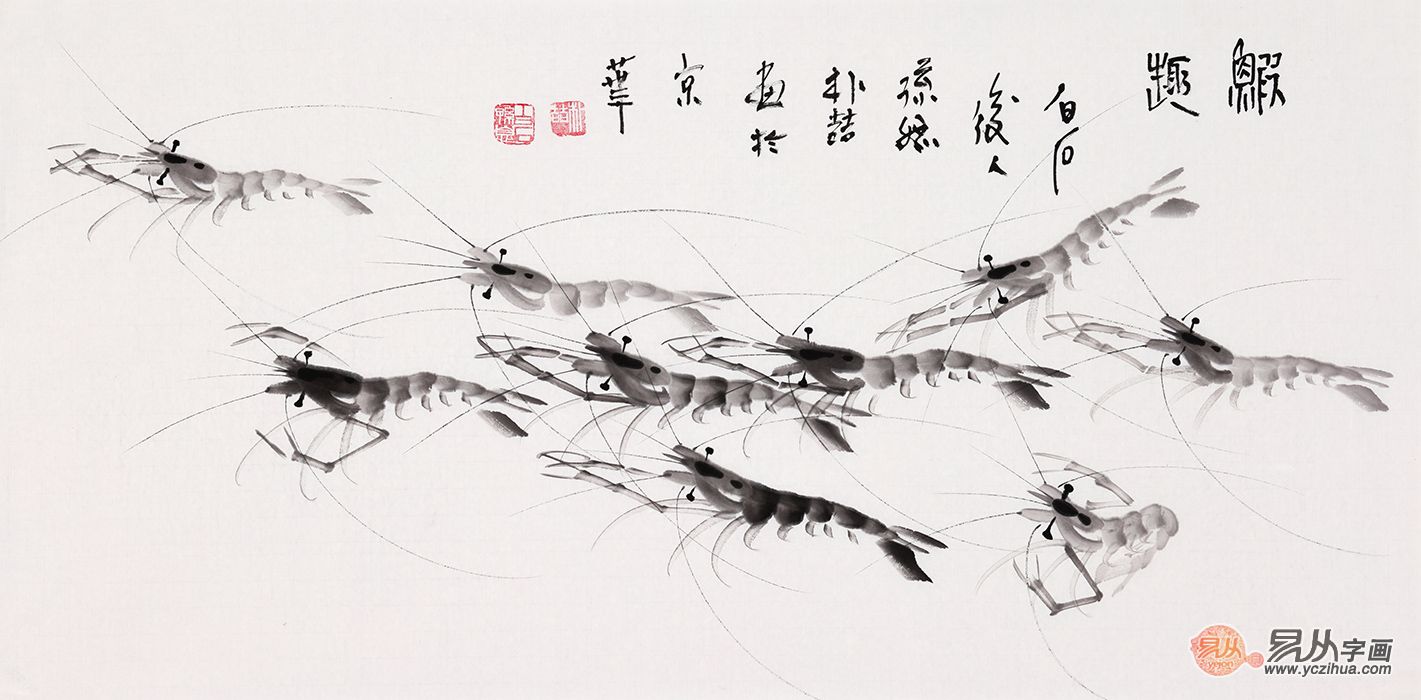 鰕
趣
白石
後人
孫媳
朴喆
画於
京
華
易从
易从字画
www.yczihua.com